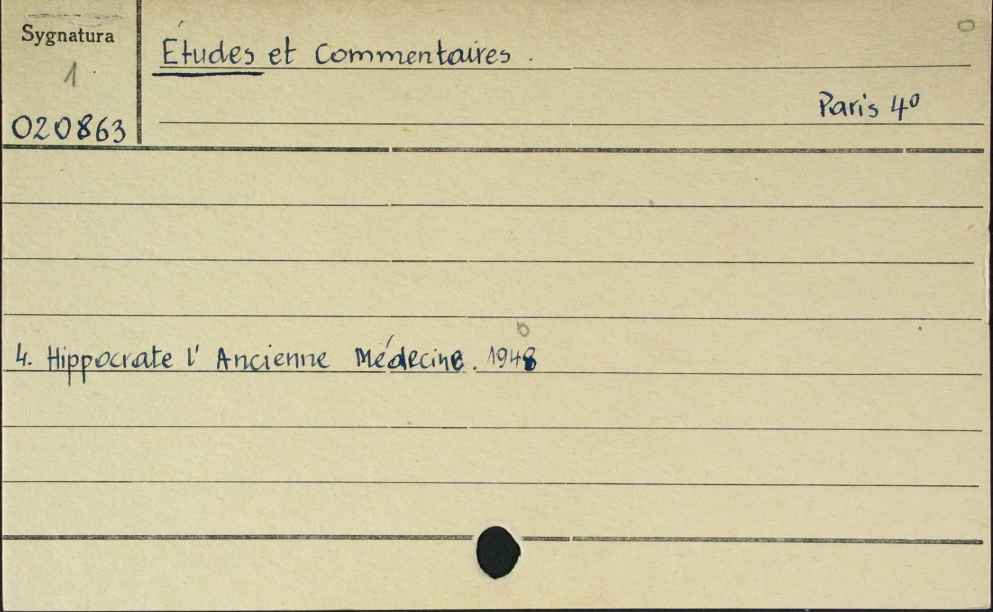 Sygnatura
1
020863
Études et Commentaires.
Paris 4º
4. Hippocrate l' Ancienne Médecine. 1948